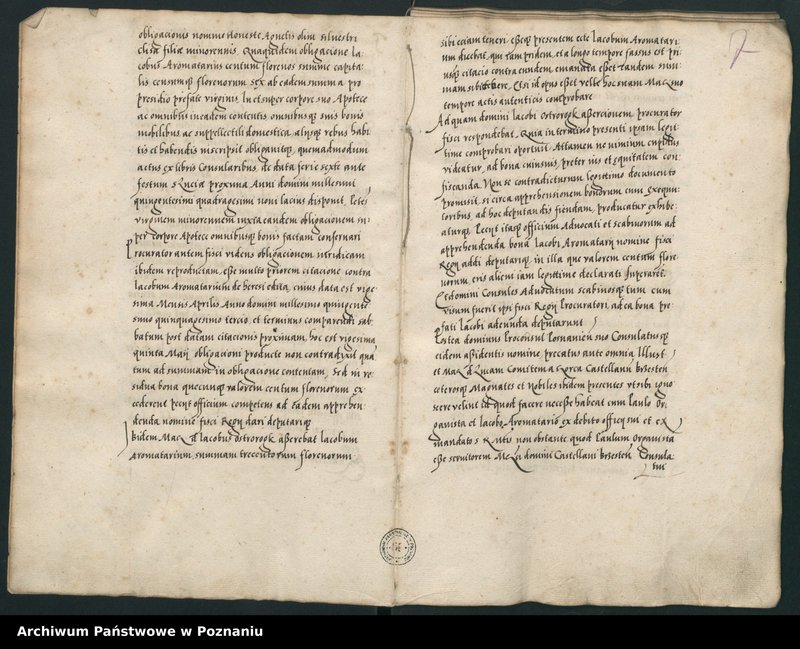 obligacionis nomine Honeste Agnetis olim Silvestri
filiæ minorennis. Quaquidem obligacione Ia-
cobus Aromatarius centum florenos summe capita-
lis censumque florenorum sex ab eadem summa pro
presidio prefate virginis In et super corpore suo Apotece
ac omnibus in eadem contentis omnibusque suis bonis
mobilibus ac suppellectili domestica, aliisque rebus habi-
tis et habendis inscripsit obligavitque, quemadmodum
actus ex libris Consularibus, de data ferie sexte ante
festum S Lucia proxima Anni domini millesimi
quingentesimi quadragesimi noni lacius disponit. Petens
virginem minorennem iuxta eandem obligacionem in-
super corpore Apotece omnibusque bonis factam conservari
Procurator autem fisci videns obligacionem iuridicam
ibidem reproduciam, esse multo priorem citacione contra
Iacobum Aromatarium de heresi edita, cuius data est vige-
sima Mensis Aprilis Anno domini millesimo quingente-
simo quinquagesimo tercio, et terminus comparendi sab-
batum post datam citacionis proximam, hoc est vigesima
quinta Maii, obligacioni producte non contradixit qua-
tum ad summam in obligacione contentam, Sed in re-
sidua bona quecunque valorem centum florenorum ex-
cederent petiit officium competens ad eadem apprehen-
denda nomine fisci Regii dari deputarique
Ibidem Mag D Iacobus Ostrorogk asserebat Iacobum
Aromatarium, summam treccentorum florenorum
sibi eciam teneri, esseque presentem ecce Iacobum Aromatari-
um dicebat, qui iam pridem, et a longo tempore fassus est pri-
usque citacio contra eundem emanata esset eandem sum-
mam sibi debere. Et si id opus esset velle hoc suam Mag suo
tempore actis autenticis comprobare
Ad quam domini Iacobi Ostrorogk assercionem, procurator
fisci respondebat, Quia in termino presenti ipsam legit-
time comprobari oportuit. Attamen ne nimium cupidus
videatur, ad bona cuiusvis, preter ius et equitatem con-
fiscanda. Non se contradicturum legittimo documento
promisit, si circa apprehensionem bonorum cum exequu-
toribus, ad hoc deputandis fiendam, producatur exhibe-
aturque. Peciit itaque officium Advocati et scabinorum ad
apprehendenda bona Iacobi Aromatarii nomine fisci
Regii addi deputarique, in illa que valorem centum flore-
norum, eris alieni iam legittime declarati superaret.
Et domini Consules Advocatum scabinosque tum cum
visum fuerit ipsi fisci Regii Procuratori, ad ea bona pre-
fati Iacobi adeunda deputarunt
Postea dominus Proconsul Posnanien suo Consulatusque
eidem assidentis nomine, precatus ante omnia Illustr
et Mag D Lucam Comitem a Gorca Castellanum Brzesten
ceterosque Magnates et Nobiles ibidem presentes ut sibi igno-
scere velint id quod facere necesse habeat cum Paulo Or-
ganista et Iacobo Aromatario ex debito officii sui et ex
mandato S R Mtis non obstante quod Paulum Organista
esse servitorem Mag domini Castellani Brzesten Consula-
tui
7
Archiwum Państwowe w Poznaniu